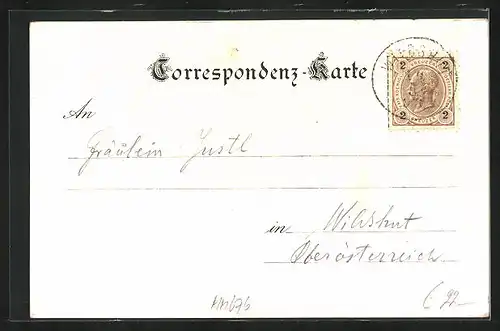 Correspondenz-Karte
2 2
2 2
An
Fräulein Justl
in Wildshut
Oberösterreich